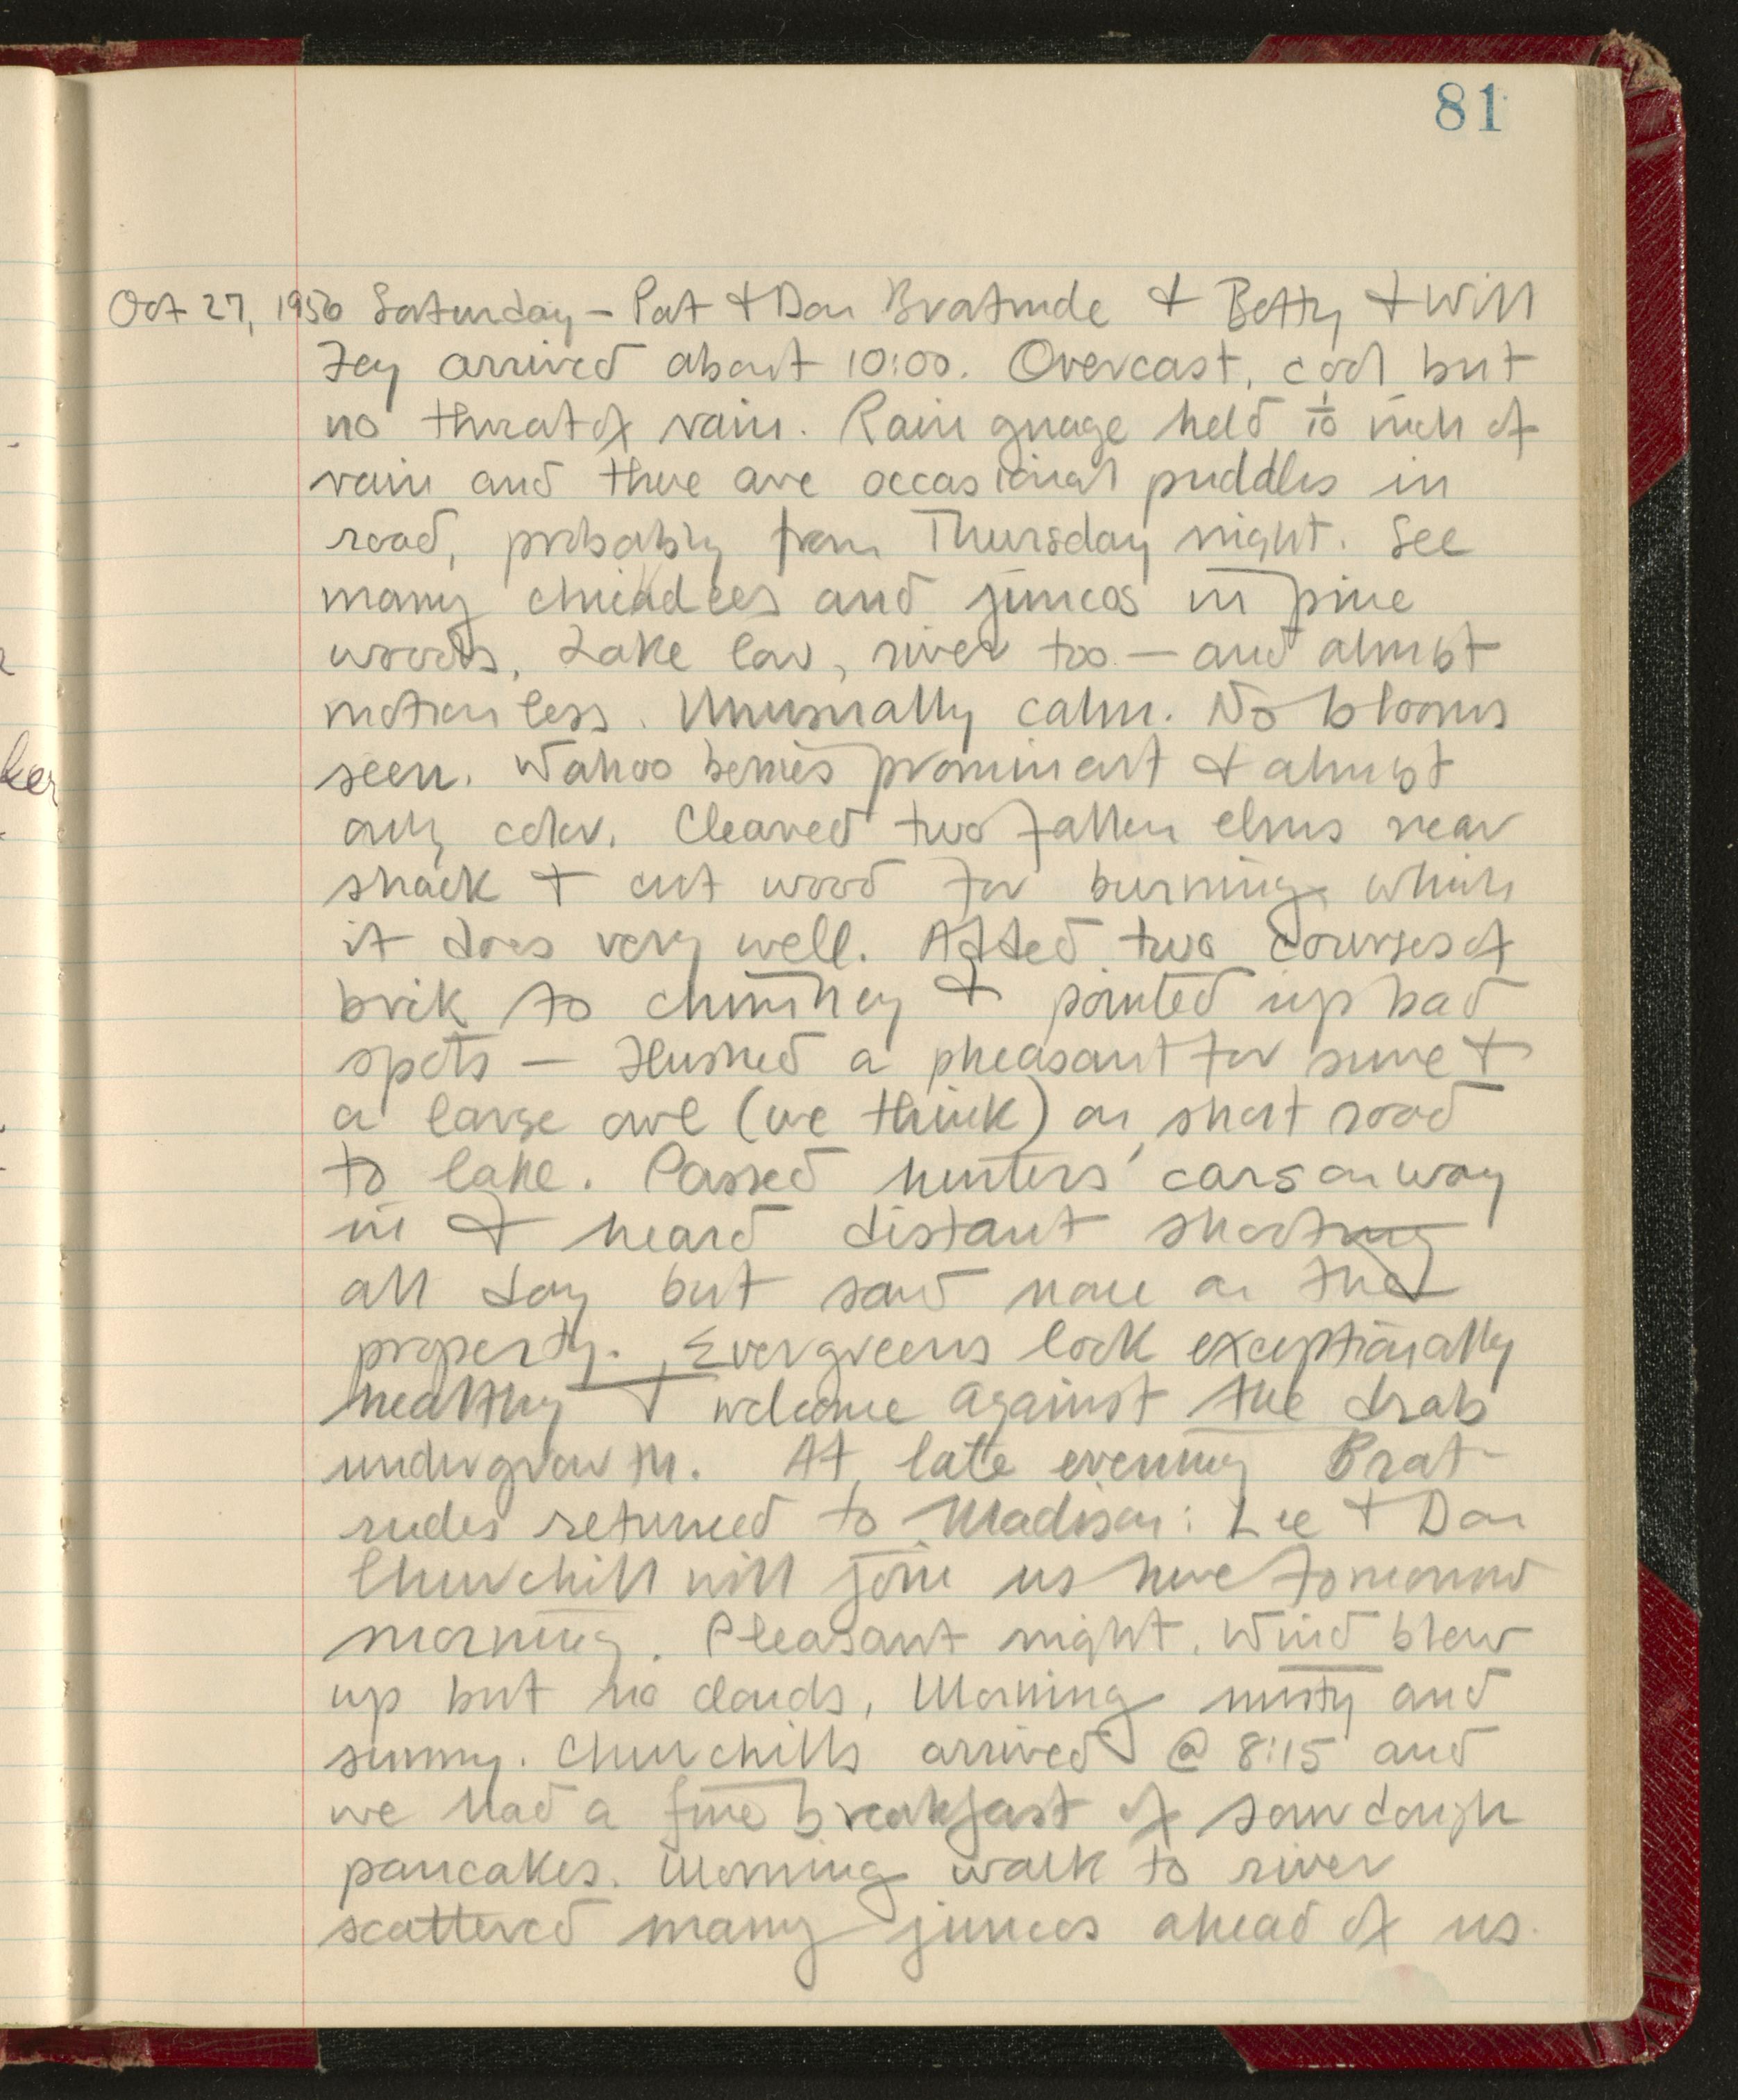 81
Oct 27, 1956 Saturday – Pat & Don Bratrude & Betty & Will
Fey arrived about 10:00. Overcast, cool but
no threat of rain. Rain guage held 1/10 inch of
rain and there are occasional puddles in
road, probably from Thursday night. See
many chickadees and juncos in pine
woods. Lake low, river too – and almost
motionless. Unusually calm. No blooms
seen. Wahoo berries prominent & almost
only color. Cleared two fallen elms near
shack & cut wood for burning which
it does very well. Added two courses of
brik to chimney & pointed up bad
spots – Flushed a pheasant for sure &
a large owl (we think) on short road
to lake. Passed hunters' cars on way
in & heard distant shooting
all day but saw none on the
property. Evergreens look exceptionally
healthy & welcome against the drab
undergrowth. At late evening Brat-
rudes returned to Madison: Lee & Don
Churchill will join us here tomorrow
morning. Pleasant night. Wind blew
up but no clouds, Morning misty and
sunny. Churchills arrived @ 8:15 and
we had a fine breakfast of sourdough
pancakes. Morning walk to river
scattered many juncos ahead of us.
ker